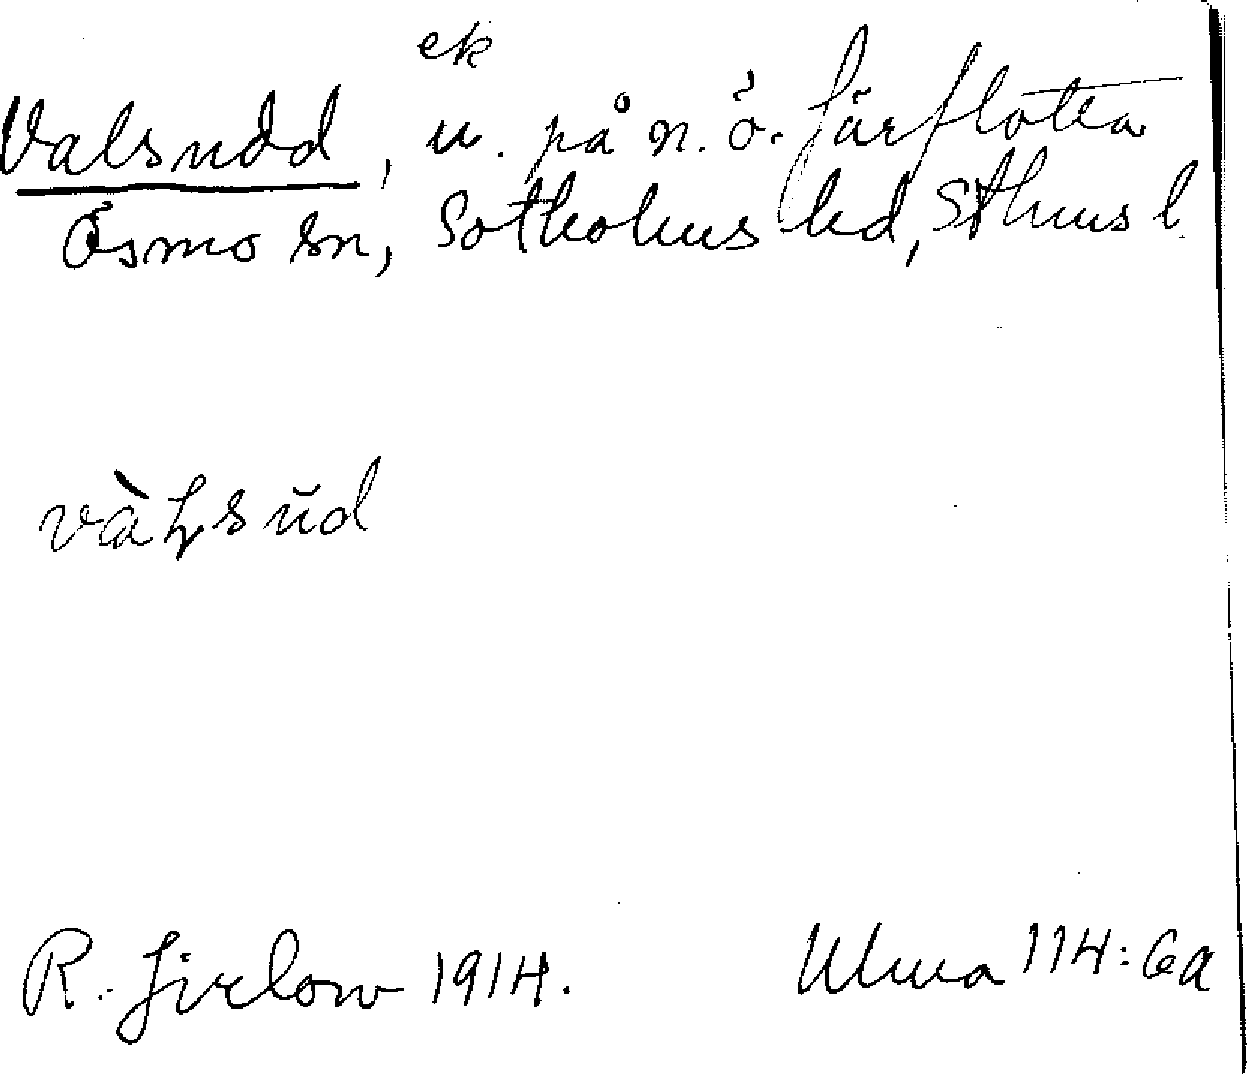 ek
Valsudd, u. på n. ö. Järflotta
Ösmo sn, Sotholms hd, Sthms l.
vàl̥sŭd
R. Jirlow 1914.
Ulma 114:6a